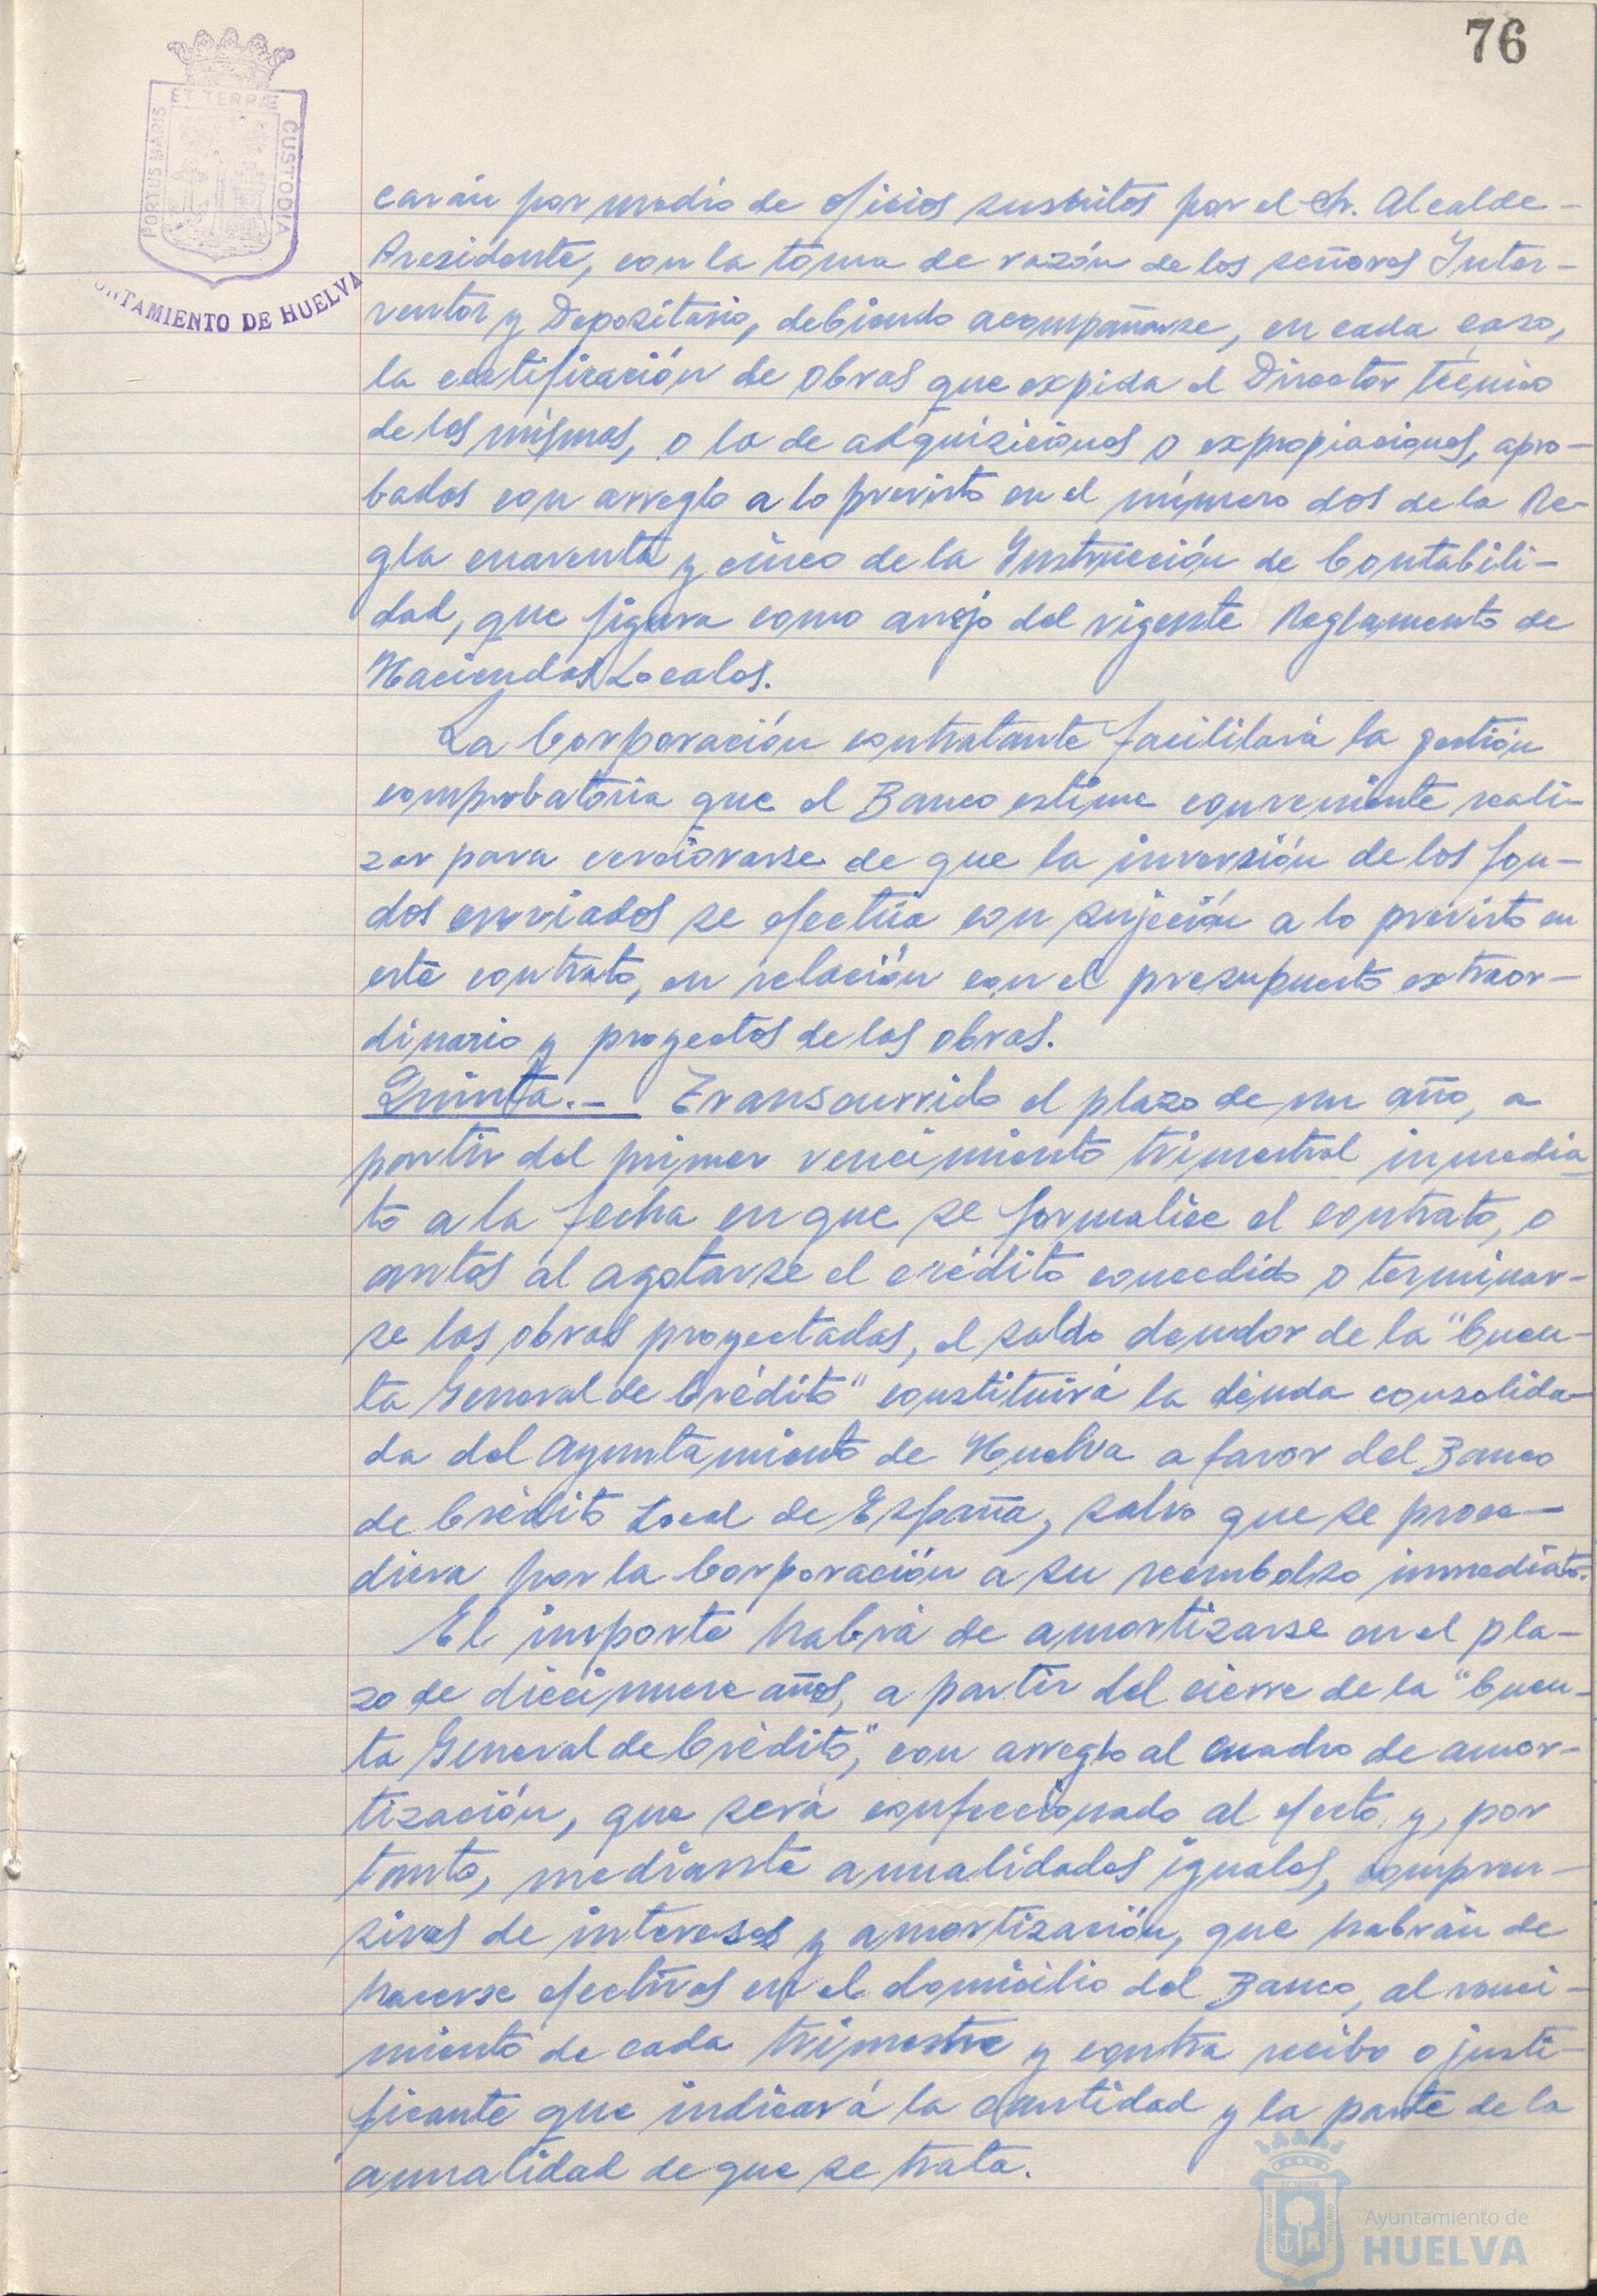 76
ET TERRÆ
PORTUS MARIS
CUSTODIA
UNTAMIENTO DE HUELVA
carán por medio de oficios suscritos por el Sr. Alcalde-
Presidente, con la toma de razón de los señores Inter-
ventor y Depositario, debiendo acompañarse, en cada caso,
la certificación de obras que expida el Director técnico
de las mismas, o la de adquisiciones o expropiaciones, apro-
badas con arreglo a lo previsto en el número dos de la Re-
gla cuarenta y cinco de la Instrucción de Contabili-
dad, que figura como anejo del vigente Reglamento de
Haciendas Locales.
La Corporación contratante facilitará la gestión
comprobatoria que el Banco estime conveniente reali-
zar para cerciorarse de que la inversión de los fon-
dos enviados se efectúa con sujeción a lo previsto en
este contrato, en relación con el presupuesto extraor-
dinario y proyectos de las obras.
Quinta.- Transcurrido el plazo de un año, a
partir del primer vencimiento trimestral inmedia
to a la fecha en que se formalice el contrato, o
antes al agotarse el crédito concedido o terminar-
se las obras proyectadas, el saldo deudor de la "Cuen-
ta General de Crédito" constituirá la deuda consolida-
da del Ayuntamiento de Huelva a favor del Banco
de Crédito Local de España, salvo que se proce-
diera por la Corporación a su reembolso inmediato.
El importe habrá de amortizarse en el pla-
zo de diecinueve años, a partir del cierre de la "Cuen-
ta General de Crédito", con arreglo al cuadro de amor-
tización, que será confeccionado al efecto, y, por
tanto, mediante anualidades iguales, compren-
sivas de intereses y amortización, que habrán de
hacerse efectivas en el domicilio del Banco, al venci-
miento de cada trimestre y contra recibo o justi-
ficante que indicará la cantidad y la parte de la
anualidad de que se trata.
Ayuntamiento de
HUELVA